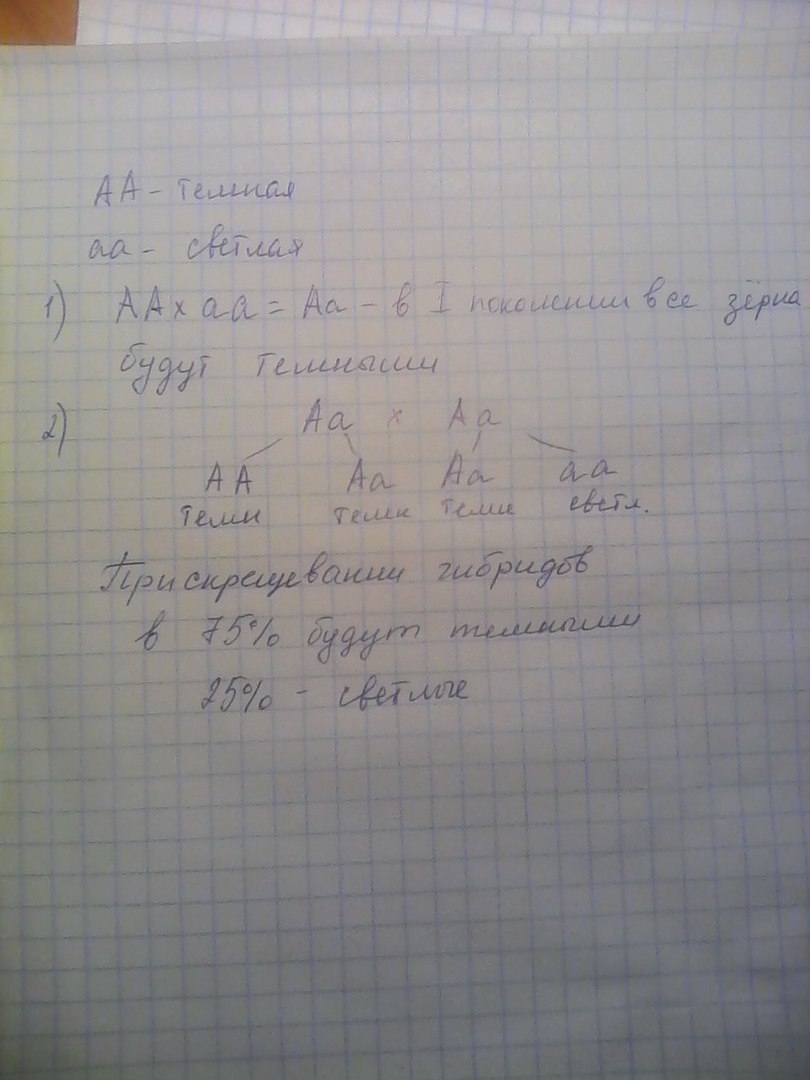 AA - темная
аа - светлая
1) AA x аа = Аа - в I поколении все зёрна
будут темными
2) Аа x Аа
АА Аа Аа аа
темн темн темн светл.
При скрещевании гибридов
в 75% будут темными
25% - светлые